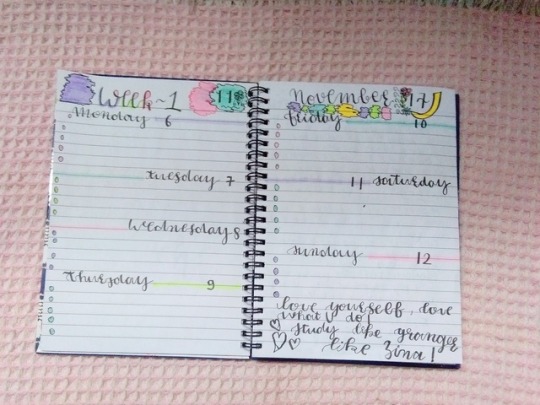 Week-1
11
Monday 6
Tuesday 7
Wednesday 8
Thursday 9
November 17
Friday 10
11 Saturday
Sunday 12
love yourself, love
what u do!
study like granger
like Zina!